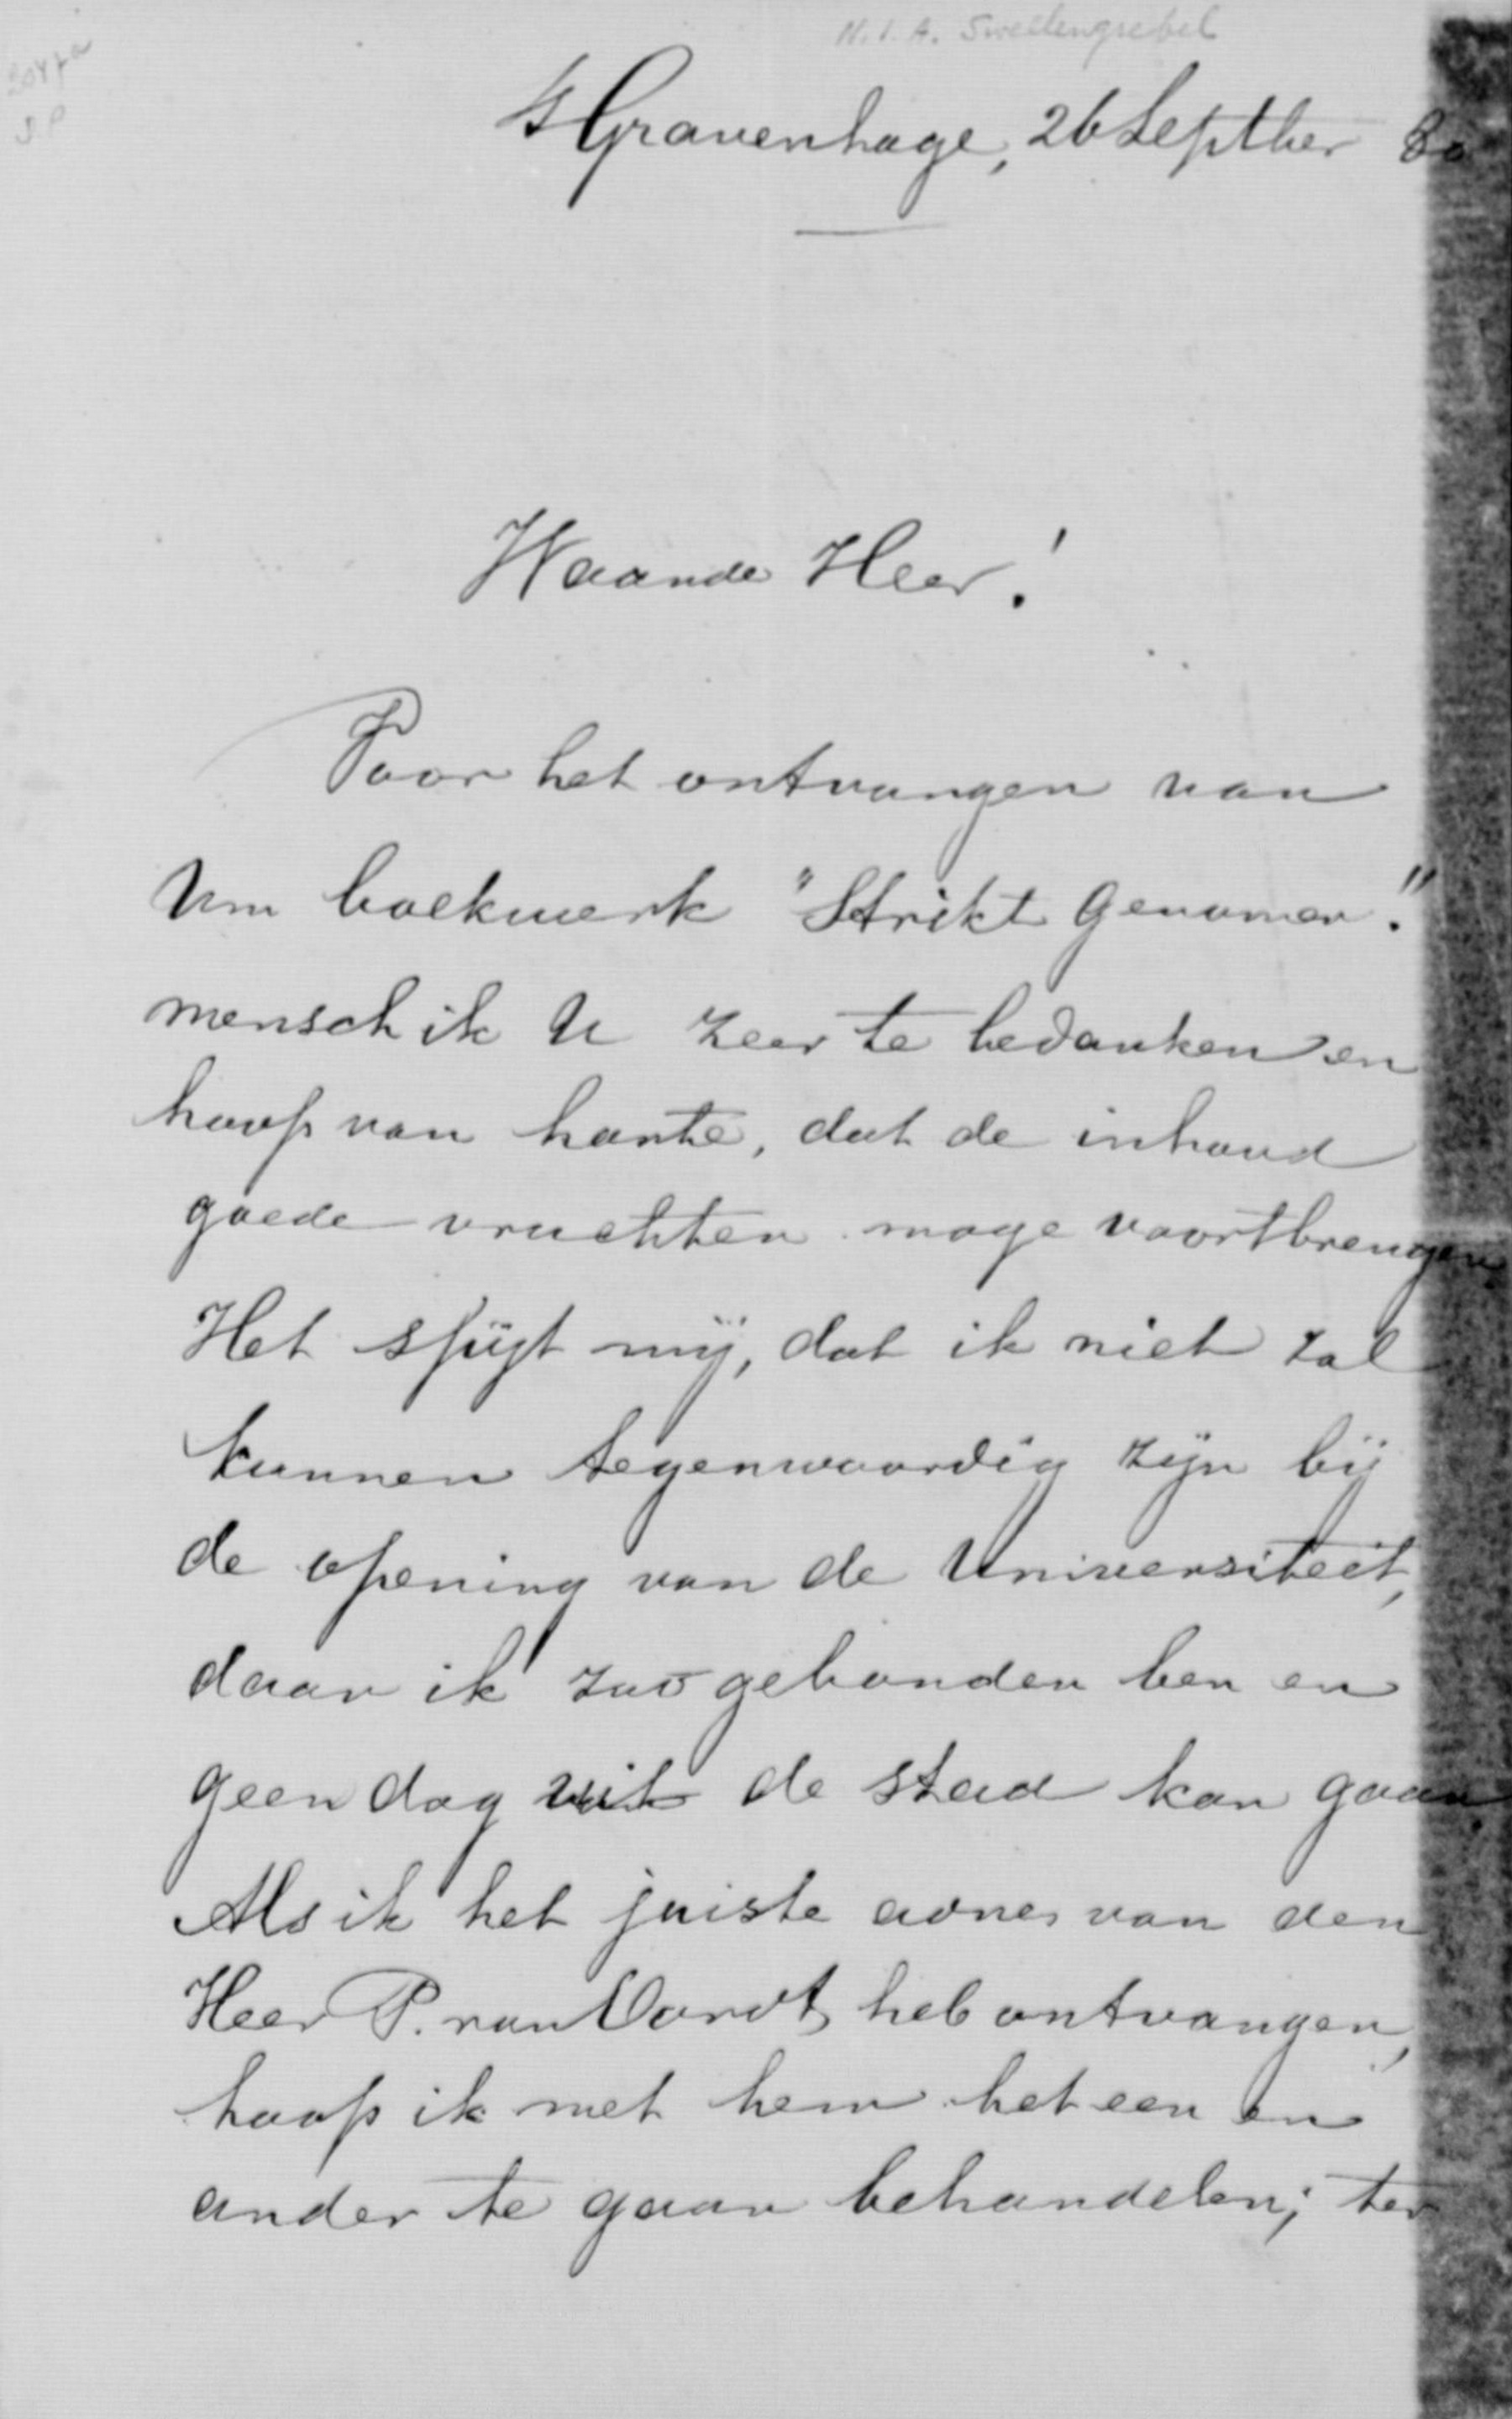 N.I.A. Swellengrebel
's Gravenhage, 26 Septber 80
Waarde Heer!
Voor het ontvangen van
Uw boekwerk "Strikt Genomen."
wensch ik U zeer te bedanken en
hoop van harte, dat de inhoud
goede vruchten moge voortbrengen.
Het spijt mij, dat ik niet zal
kunnen tegenwoordig zijn bij
de opening van de Universiteit,
daar ik zoo gebonden ben en
geen dag uit de stad kan gaan.
Als ik het juiste adres van den
Heer P. van Oordt heb ontvangen,
hoop ik met hem het een en
ander te gaan behandelen; ter